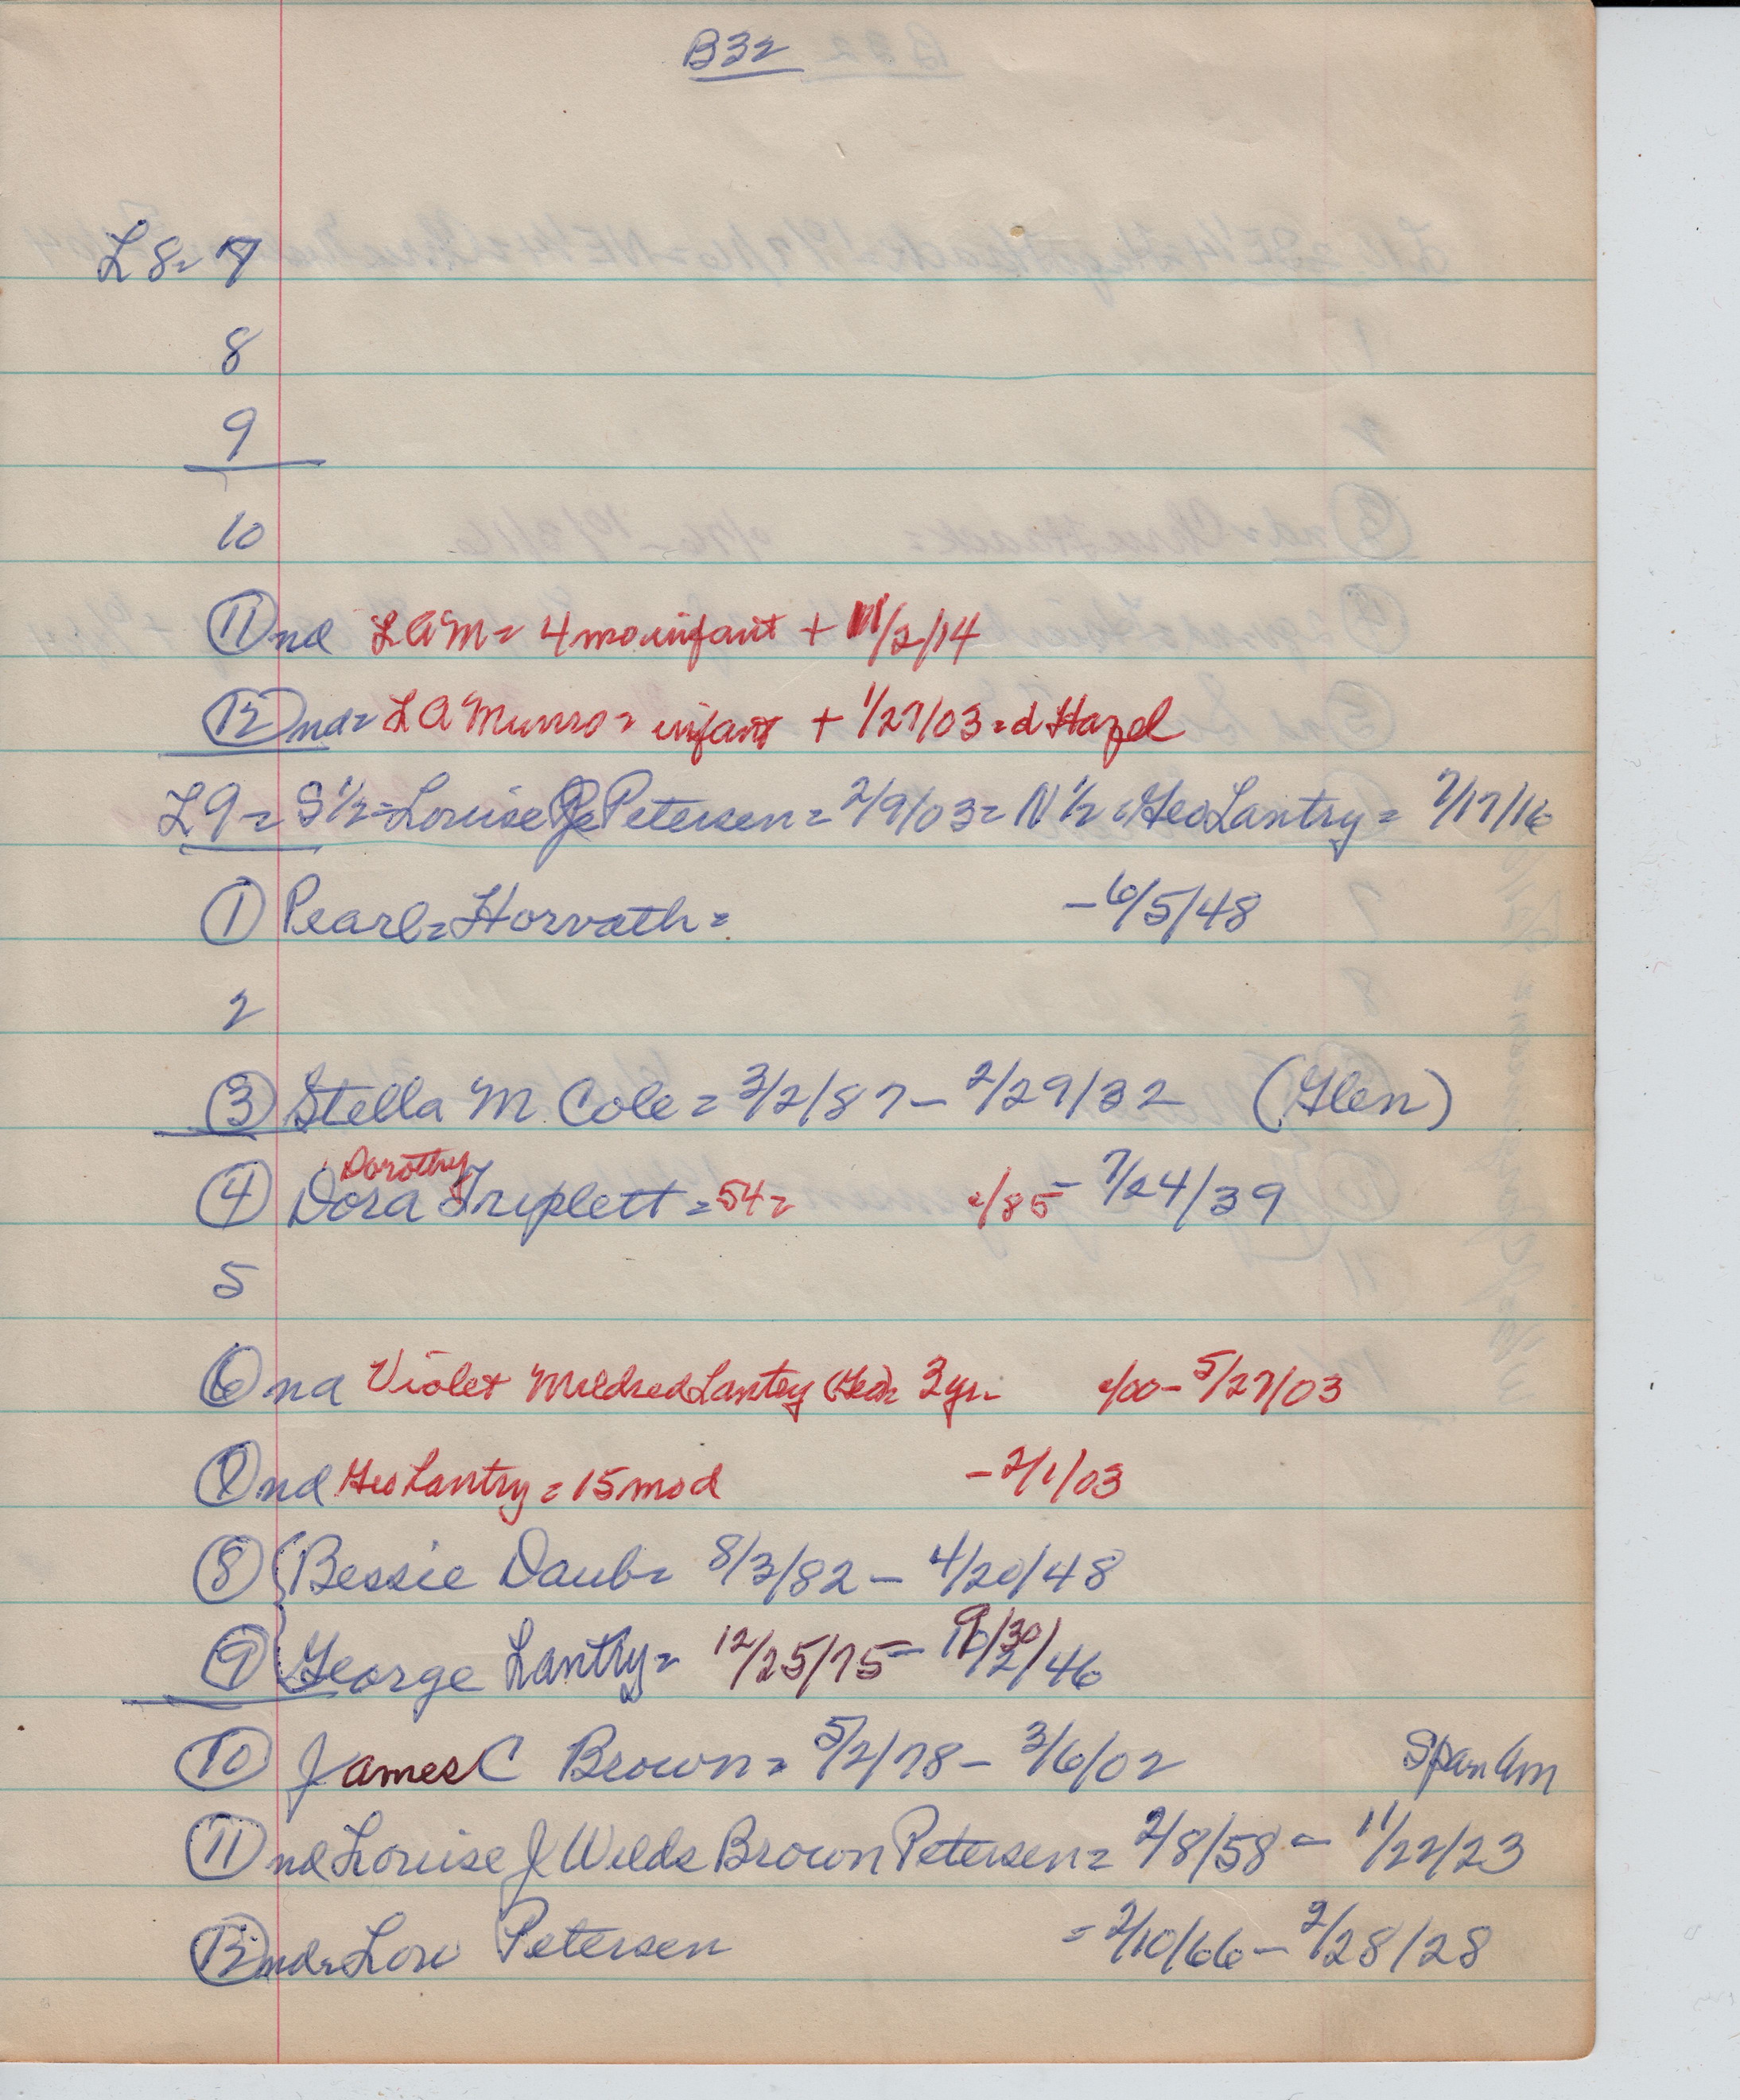 B32
L8= 7
8
9
10
11 nd LAM= 4 mo infant + 11/2/14
12 nd= LA Munro= infant + 1/27/03=d Hazel
L9= S 1/2=Louise J Petersen= 2/9/03= N 1/2 = Geo Lantry= 7/17/16
1 Pearl= Horvath= -6/5/48
2
3 Stella M Cole= 3/2/87- 2/29/32 (Glen)
Dorothy
4 Dora Triplett=54= c/85- 7/24/39
5
6 nd Violet Mildred Lantry (Geo)= 3yr- c/00- 5/27/03
7 nd Geo Lantry= 15 mo d -2/1/03
8 {Bessie Daub= 8/3/82- 4/20/48
9/30/
9 {George Lantry= 12/25/75- 10/2/46
10 James C Brown= 5/2/78- 3/6/02 Span Am
11 nd Louise J Wilds Brown Petersen= 2/8/58- 11/22/23
12 nd= Lou Petersen = 2/10/66- 2/28/28